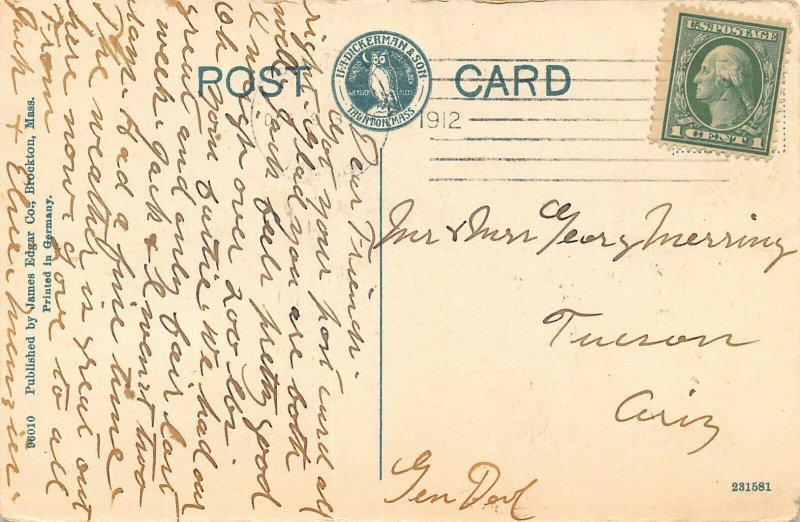 POST CARD
H. DICKERMAN & SON
TAUNTON, MASS.
1912
U.S. POSTAGE
1 CENT 1
Dear Friends.
Got your post card all
right. Glad you are both
well. Jack feels pretty good
weigh over 200 lbs.
Oh you turtie. We had our
great and only fair last
week. Jack & I went two
days. Had a fine time.
The weather is great out
here now. Love to all
From
Jack &
Mr & Mrs Georg Merring
Tucson
Ariz
Gen Del
96010 Published by James Edgar Co., Brockton, Mass.
Printed in Germany.
231581